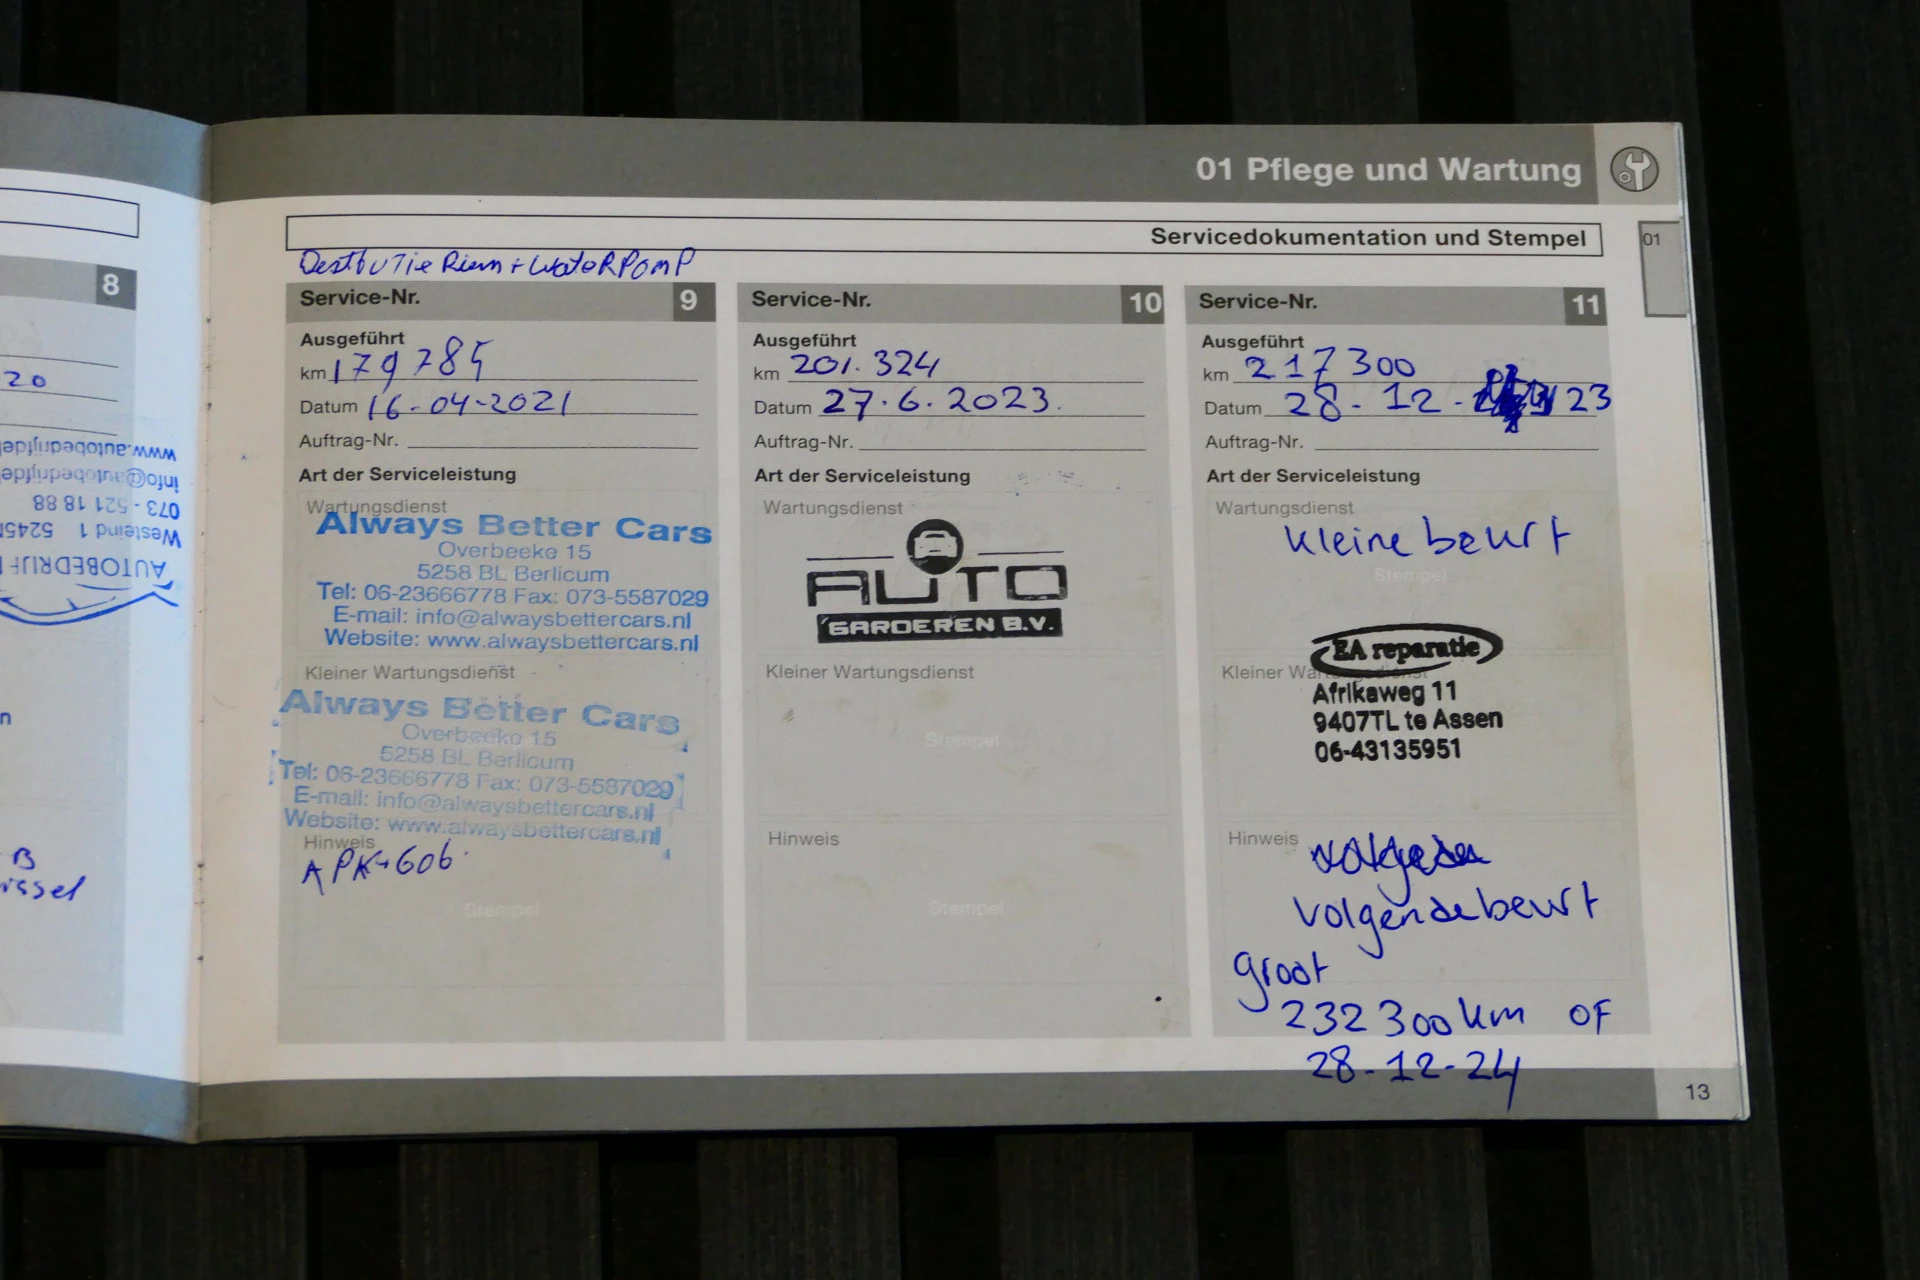 8
20
www.autobedrijfde
info@autobedrijfde
073 - 521 18 88
Westeind 1 5245
AUTOBEDRIJF
n
B
01 Pflege und Wartung
Servicedokumentation und Stempel
01
DestbuTie Riem + WateRPomP
Service-Nr. 9
Ausgeführt
km 179785
Datum 16-04-2021
Auftrag-Nr.
Art der Serviceleistung
Wartungsdienst
Always Better Cars
Overbeeke 15
5258 BL Berlicum
Tel: 06-23666778 Fax: 073-5587029
E-mail: info@alwaysbettercars.nl
Website: www.alwaysbettercars.nl
Kleiner Wartungsdienst
Always Better Cars
Overbeeke 15
5258 BL Berlicum
Tel: 06-23666778 Fax: 073-5587029
E-mail: info@alwaysbettercars.nl
Website: www.alwaysbettercars.nl
Hinweis
APK+606
Stempel
Service-Nr. 10
Ausgeführt
km 201.324
Datum 27.6.2023.
Auftrag-Nr.
Art der Serviceleistung
Wartungsdienst
AUTO
GARDEREN B.V.
Kleiner Wartungsdienst
Stempel
Hinweis
Stempel
Service-Nr. 11
Ausgeführt
km 217300
Datum 28-12-23
Auftrag-Nr.
Art der Serviceleistung
Wartungsdienst
kleine beurt
Stempel
EA reparatie
Kleiner Wartungsdienst
Afrikaweg 11
9407TL te Assen
06-43135951
Hinweis
volgende beurt
groot
232300 km OF
28-12-24
13